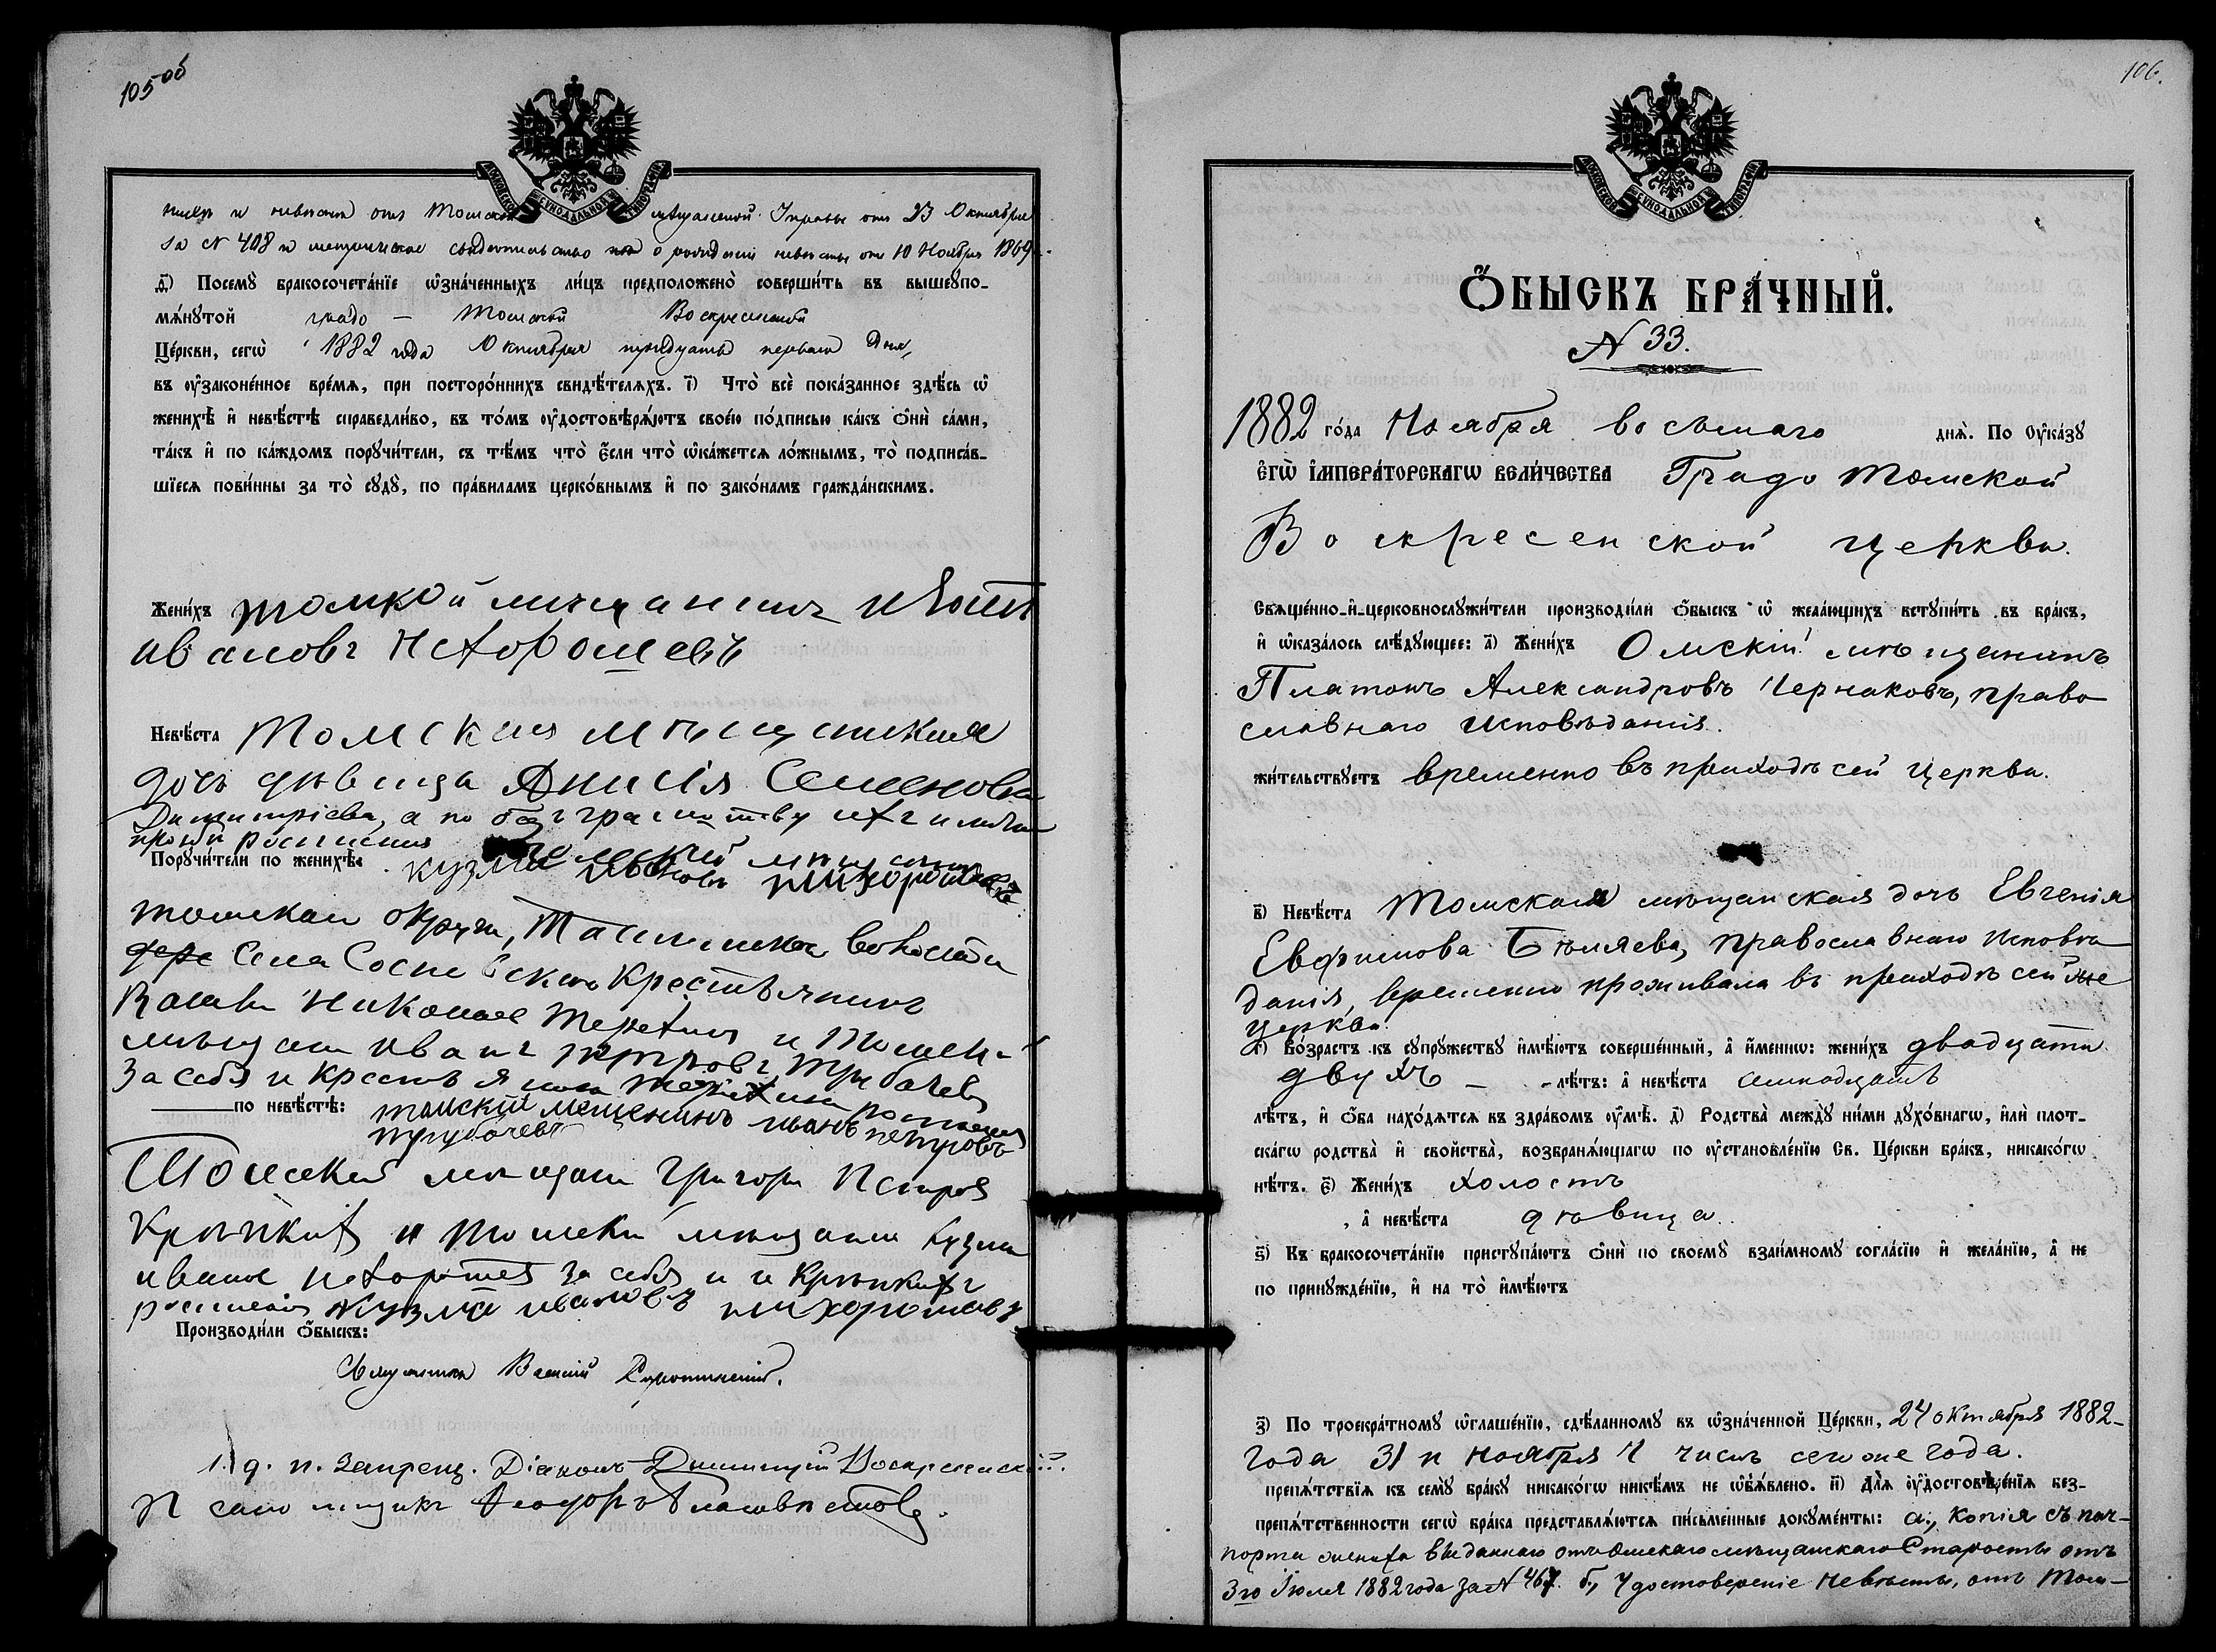 105об
МОСКОВСКОЙ СѴНОДАЛЬНОЙ ТИПОГРАФІИ
и невѣсты отъ Томской мѣщанской Управы отъ 23 Октября
за № 408 и метрическое свидетельство о рождении невѣсты отъ 10 Ноября 1869
д҃і) Посемꙋ̀ бракосочета́нїе ѡ҆зна́ченныхъ ли́цъ предположено̀ соверши́ть въ вышеꙋпо-
мѧ́нꙋтой градо - Томской Воскресенской
Це́ркви, сегѡ̀ 1882 года Октября тридцать перваго дня,
въ ᲂу҆законе́нное вре́мѧ, при посторо́ннихъ свидѣ́телѧхъ. і҃) Что̀ всѐ пока́занное здѣ́сь ѡ҆
женихѣ̀ и҆ невѣ́стѣ справедли́во, въ то́мъ ᲂу҆достовѣрѧ́ютъ свое́ю по́дписью ка́къ ѻ҆нѝ са́ми,
та́къ и҆ по ка́ждомъ порꙋчи́тели, съ тѣ́мъ что̀ є҆́сли что̀ ѡ҆ка́жетсѧ ло́жнымъ, то̀ подписа́в-
шїесѧ пови́нны за то̀ сꙋдꙋ̀, по пра́виламъ церко́внымъ и҆ по зако́намъ гражда́нскимъ.
Жени́хъ томкой мищанинъ
ивановъ Нехорошевъ
Невѣ́ста Томская мѣщанская
дочь дѣвица Анисія Семеновна
Димитріева, а по безграмотству ихъ и личной
прозьбѣ росписался
Порꙋчи́тели по женихѣ̀: томской мищанинъ
кузма ивановъ нихорошевъ
томскаи округи, волости
села Сосновскаго крестьянинъ
Николае Терехинъ и томск
мѣщани иванъ петровъ трубачевъ
за себя и крестьянина Терехина росписался
по невѣ́стѣ: томский мещенинъ иванъ петровъ
трубачевъ
Томской мещани григори Петров
Крѣпкихъ и томски мищани кузма
ивано нехорошев за себя и и Крѣпкихъ
росписался кузма ивановъ нихорошавъ
Производи́ли ѻ҆́быскъ:
Священникъ
И. д. п. запрещ. Діаконъ Димитрій Воскресенскій.
Псаломщикъ Ѳеодоръ
106.
МОСКОВСКОЙ СѴНОДАЛЬНОЙ ТИПОГРАФІИ
Ѻ҆́БЫСКЪ БРА́ЧНЫЙ.
№ 33.
1882 го́да Ноября восьмаго днѧ̀. По ᲂу҆ка́зꙋ
є҆гѡ̀ і҆мпера́торскагѡ вели́чества Градо Томской
Воскресенской церкви.
Свѧще́нно-и҆-церковнослꙋжи́тели производи́ли ѻ҆́быскъ ѡ҆ жела́ющихъ встꙋпи́ть въ бра́къ,
и҆ ѡ҆каза́лось слѣ́дꙋющее: а҃) Жени́хъ Омскій мѣщанинъ
Платонъ Александровъ Чернаковъ, право
славнаго исповѣданія.
жи́тельствꙋетъ временно въ приходѣ сей церкви.
в҃) Невѣ́ста Томская мѣщанская дочь Евгенія
Евфимова Бѣляева, православнаго исповѣ
данія, временно проживала въ приходѣ сей же
церкви.
г҃) Во́зрастъ къ сꙋпрꙋ́жествꙋ и҆мѣ́ютъ соверше́нный, а҆ и҆́меннѡ: жени́хъ двадцати
двухъ – лѣ́тъ: а҆ невѣ́ста семнадцать
лѣ́тъ, и҆ ѻ҆́ба нахо́дѧтсѧ въ здра́вомъ ᲂу҆мѣ̀. д҃) Родства̀ междꙋ̀ ни́ми дꙋхо́внагѡ, и҆лѝ плот-
ска́гѡ родства̀ и҆ свойства̀, возбранѧ́ющагѡ по ᲂу҆становле́нїю Св. Це́ркви бра́къ, никако́гѡ
нѣ́тъ. є҃) Жени́хъ холостъ
, а҆ невѣ́ста дѣвица.
ѕ҃) Къ бракосочета́нїю пристꙋпа́ютъ ѻ҆нѝ по своемꙋ̀ взаи́мномꙋ согла́сїю и҆ жела́нїю, а҆ не
по принꙋжде́нїю, и҆ на то̀ и҆мѣ́ютъ
з҃) По троекра́тномꙋ ѡ҆глаше́нїю, сдѣ́ланномꙋ въ ѡ҆зна́ченной Це́ркви, 24 октября 1882-
года 31 и Ноября 7 числъ сего же года.
препѧ́тствїѧ къ семꙋ̀ бра́кꙋ никако́гѡ никѣ́мъ не ѡ҆б̾ѧ́влено. и҃) Длѧ̀ ᲂу҆достовѣре́нїѧ без-
препѧ́тственности сегѡ̀ бра́ка представлѧ́ютсѧ пи́сьменные докꙋме́нты: а., копія съ пач-
порта жениха выданнаго отъ Омскаго мѣщанскаго Старосты отъ
3го Іюля 1882 года за № 467. б., Удостоверение невѣсты, отъ Том-